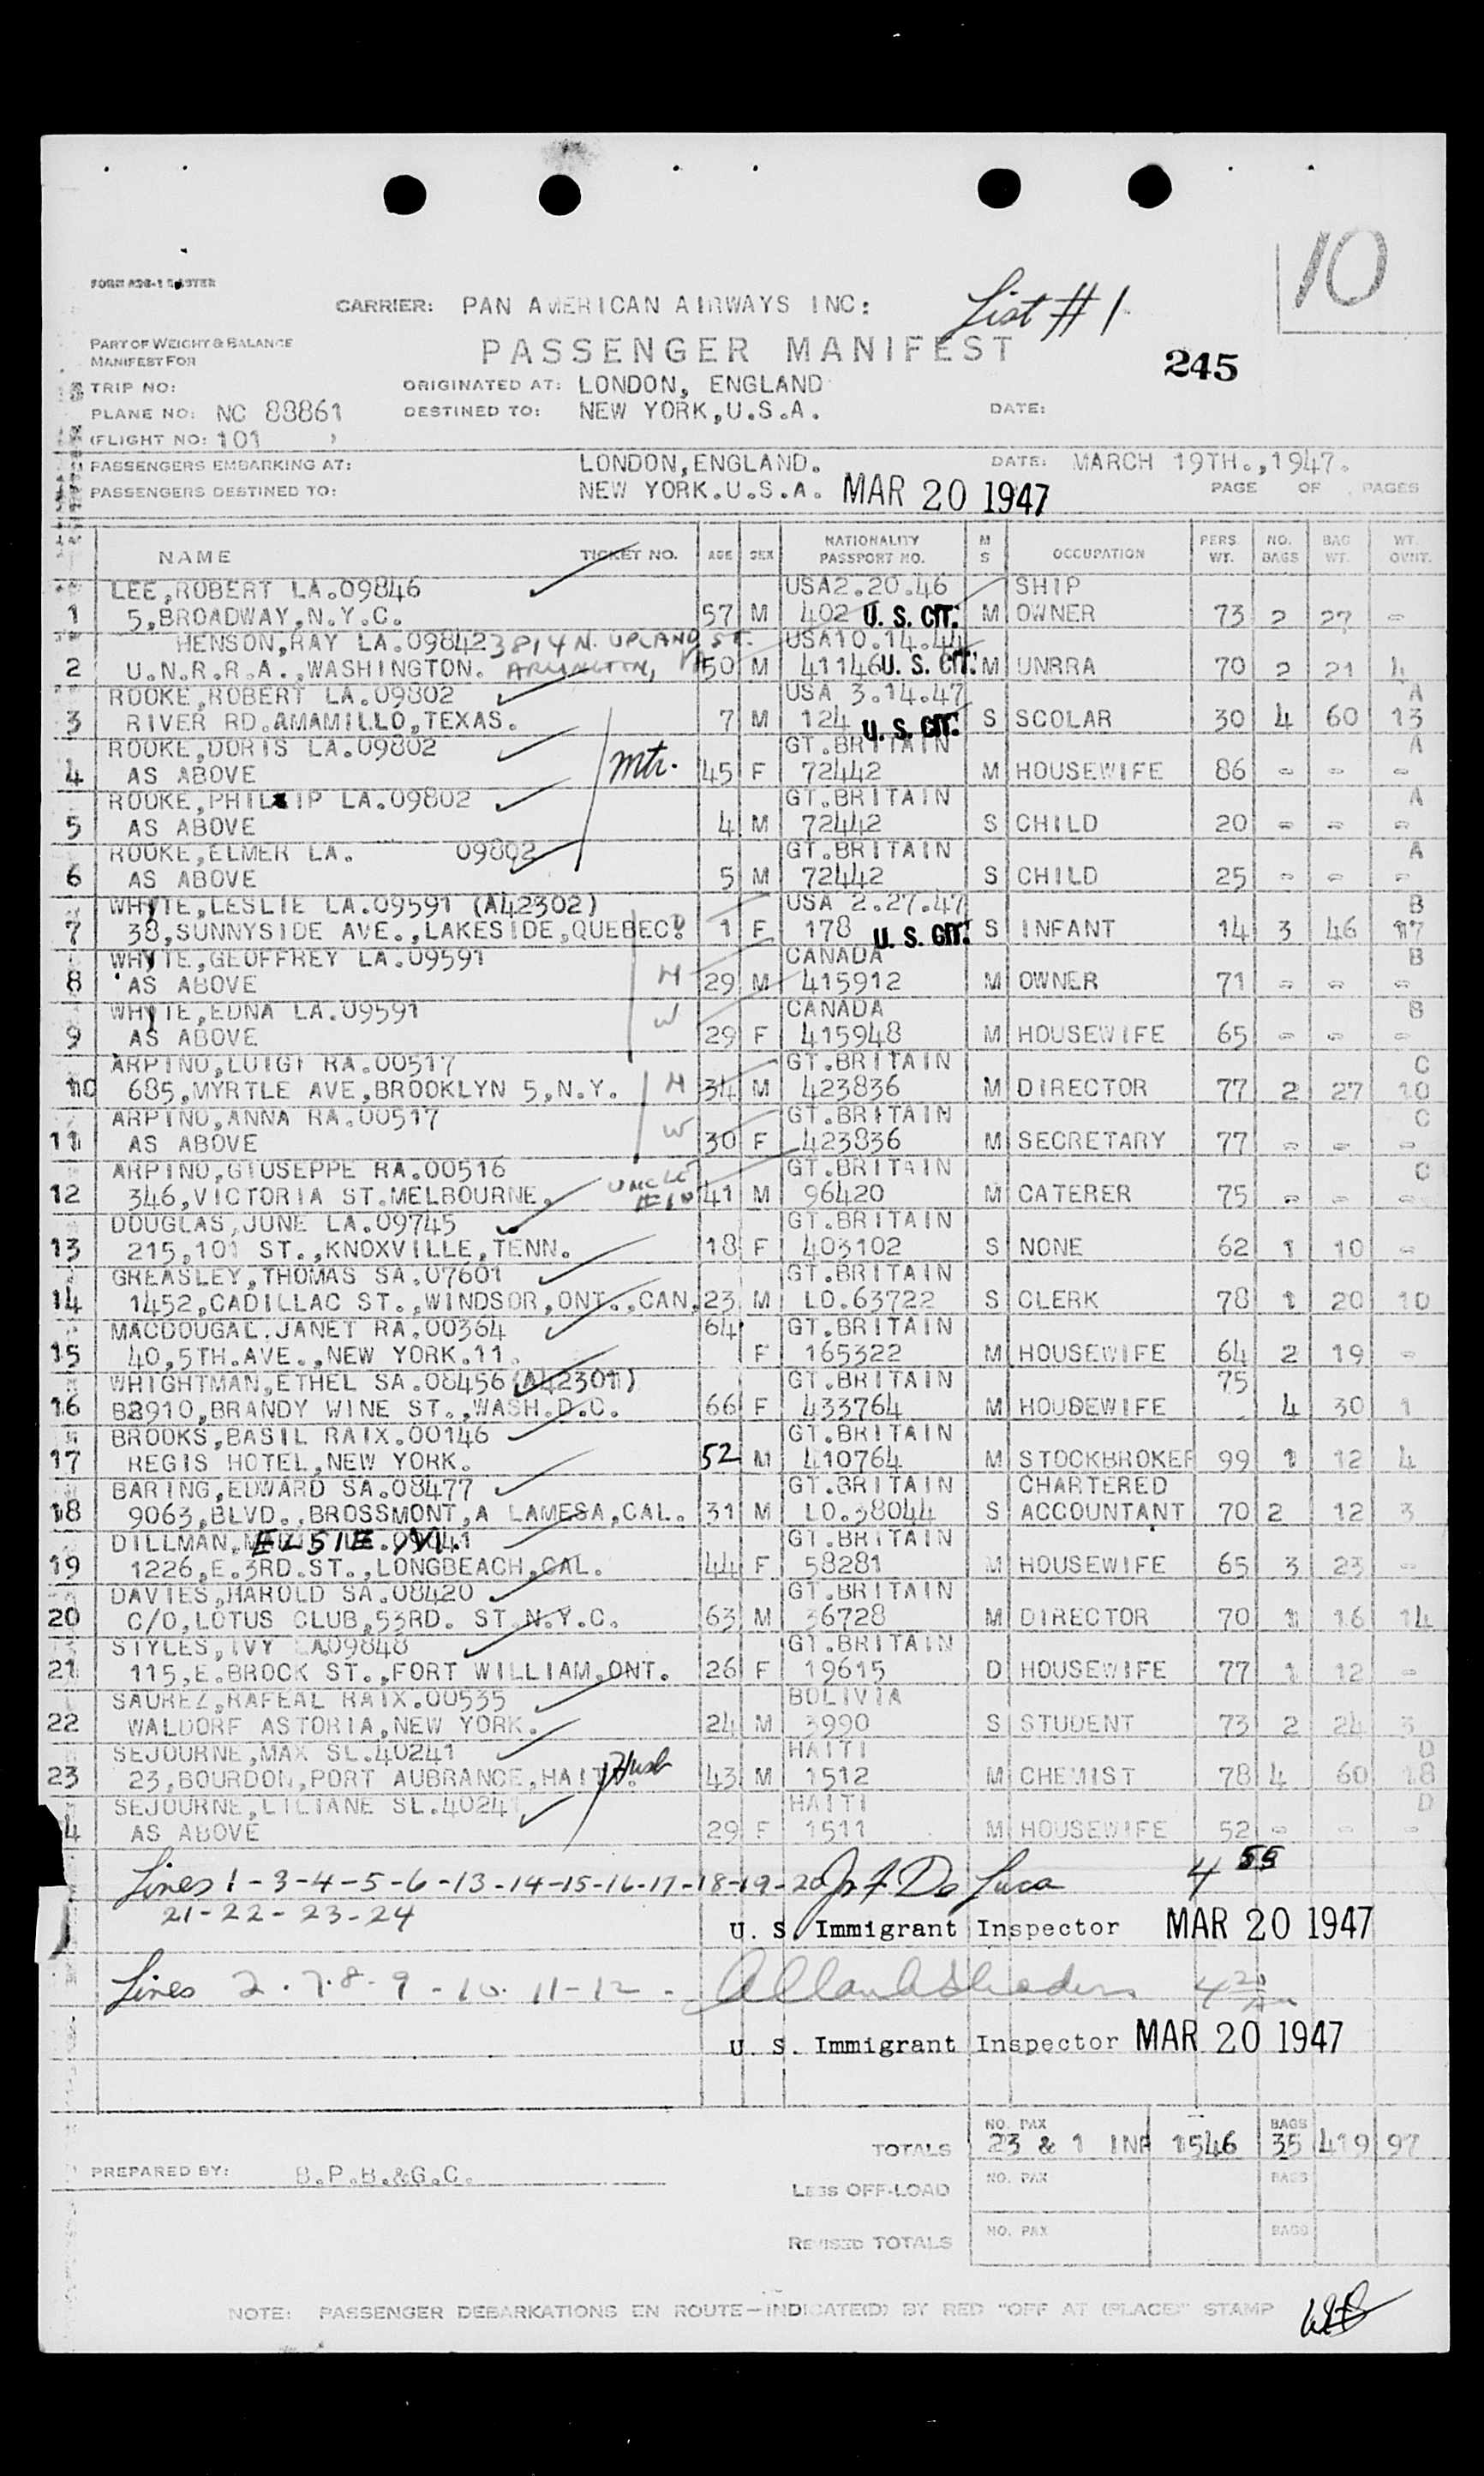 10
FORM
CARRIER: PAN AMERICAN AIRWAYS INC:
List # 1
PART OF WEIGHT & BALANCE
MANIFEST FOR
PASSENGER MANIFEST
245
TRIP NO:
ORIGINATED AT: LONDON, ENGLAND
PLANE NO: NC 88861
DESTINED TO: NEW YORK,U.S.A.
DATE:
(FLIGHT NO: 101 )
PASSENGERS EMBARKING AT: LONDON,ENGLAND. DATE: MARCH 19TH.,1947.
PASSENGERS DESTINED TO: NEW YORK.U.S.A. MAR 20 1947 PAGE OF PAGES
NAME TICKET NO. AGE SEX NATIONALITY PASSPORT NO. M S OCCUPATION PERS. WT. NO. BAGS BAG WT. WT. OVWT.
LEE,ROBERT LA.09846 USA2.20.46 SHIP
1 5,BROADWAY,N.Y.C. 57 M 402 U. S. CIT. M OWNER 73 2 27 -
HENSON,RAY LA.09842 3814 N. UPLAND ST. USA10.14.44
2 U.N.R.R.A.,WASHINGTON. ARLINGTON, VA 50 M 41146 U. S. CIT. M UNRRA 70 2 21 4
ROOKE,ROBERT LA.09802 USA 3.14.47 A
3 RIVER RD.AMAMILLO,TEXAS. 7 M 124 U. S. CIT. S SCOLAR 30 4 60 13
ROOKE,DORIS LA.09802 GT.BRITAIN A
4 AS ABOVE Mtr. 45 F 72442 M HOUSEWIFE 86 - - -
ROOKE,PHILXIP LA.09802 GT.BRITAIN A
5 AS ABOVE 4 M 72442 S CHILD 20 - - -
ROOKE,ELMER LA. 09802 GT.BRITAIN A
6 AS ABOVE 5 M 72442 S CHILD 25 - - -
WHYTE,LESLIE LA.09591 (A42302) USA 2.27.47 B
7 38,SUNNYSIDE AVE.,LAKESIDE,QUEBEC. D 1 F 178 U. S. CIT. S INFANT 14 3 46 17
WHYTE,GEOFFREY LA.09591 CANADA B
8 AS ABOVE H 29 M 415912 M OWNER 71 - - -
WHYTE,EDNA LA.09591 CANADA B
9 AS ABOVE W 29 F 415948 M HOUSEWIFE 65 - - -
ARPINO,LUIGI RA.00517 GT.BRITAIN C
10 685,MYRTLE AVE,BROOKLYN 5,N.Y. H 34 M 423836 M DIRECTOR 77 2 27 10
ARPINO,ANNA RA.00517 GT.BRITAIN C
11 AS ABOVE W 30 F 423836 M SECRETARY 77 - - -
ARPINO,GIUSEPPE RA.00516 GT.BRITAIN C
12 346,VICTORIA ST.MELBOURNE. UNCLE 41 M 96420 M CATERER 75 - - -
DOUGLAS,JUNE LA.09745 GT.BRITAIN
13 215,101 ST.,KNOXVILLE,TENN. 18 F 403102 S NONE 62 1 10 -
GREASLEY,THOMAS SA.07601 GT.BRITAIN
14 1452,CADILLAC ST.,WINDSOR,ONT.,CAN. 23 M LO.63722 S CLERK 78 1 20 10
MACDOUGAL.JANET RA.00364 64 GT.BRITAIN
15 40,5TH.AVE.,NEW YORK.11. F 165322 M HOUSEWIFE 64 2 19 -
WRIGHTMAN,ETHEL SA.08456 (A42301) GT.BRITAIN 75
16 B2910,BRANDY WINE ST.,WASH.D.C. 66 F 433764 M HOUSEWIFE 4 30 1
BROOKS,BASIL RAIX.00146 GT.BRITAIN
17 REGIS HOTEL,NEW YORK. 52 M 410764 M STOCKBROKER 99 1 12 4
BARING,EDWARD SA.08477 GT.BRITAIN CHARTERED
18 9063,BLVD.,BROSSMONT,A LAMESA,CAL. 31 M LO.38044 S ACCOUNTANT 70 2 12 3
DILLMAN, ELSIE M. GT.BRITAIN
19 1226,E.3RD.ST.,LONGBEACH,CAL. 44 F 58281 M HOUSEWIFE 65 3 23 -
DAVIES,HAROLD SA.08420 GT.BRITAIN
20 C/O,LOTUS CLUB,53RD. ST.N.Y.C. 63 M 36728 M DIRECTOR 70 1 16 14
STYLES,IVY LA09848 GT.BRITAIN
21 115,E.BROCK ST.,FORT WILLIAM,ONT. 26 F 19615 D HOUSEWIFE 77 1 12 -
SAUREZ,RAFEAL RAIX.00535 BOLIVIA
22 WALDORF ASTORIA,NEW YORK. 24 M 3990 S STUDENT 73 2 24 3
SEJOURNE,MAX SL.40241 HAITI D
23 23,BOURDON,PORT AUBRANCE,HAITI. Husb 43 M 1512 M CHEMIST 78 4 60 18
SEJOURNE,LILIANE SL.40241 HAITI D
4 AS ABOVE 29 F 1511 M HOUSEWIFE 52 - - -
Lines 1-3-4-5-6-13-14-15-16-17-18-19-20 Jr F De Luca 4 55
21-22-23-24
U. S. Immigrant Inspector MAR 20 1947
Lines 2.7.8.9-10.11-12- 4 20
U. S. Immigrant Inspector MAR 20 1947
TOTALS NO. PAX 23 & 1 INF 1546 BAGS 35 419 97
PREPARED BY: B.P.B.&G.C.
LESS OFF-LOAD NO. PAX BAGS
REVISED TOTALS NO. PAX BAGS
NOTE: PASSENGER DEBARKATIONS EN ROUTE—INDICATE(D) BY RED "OFF AT (PLACE)" STAMP